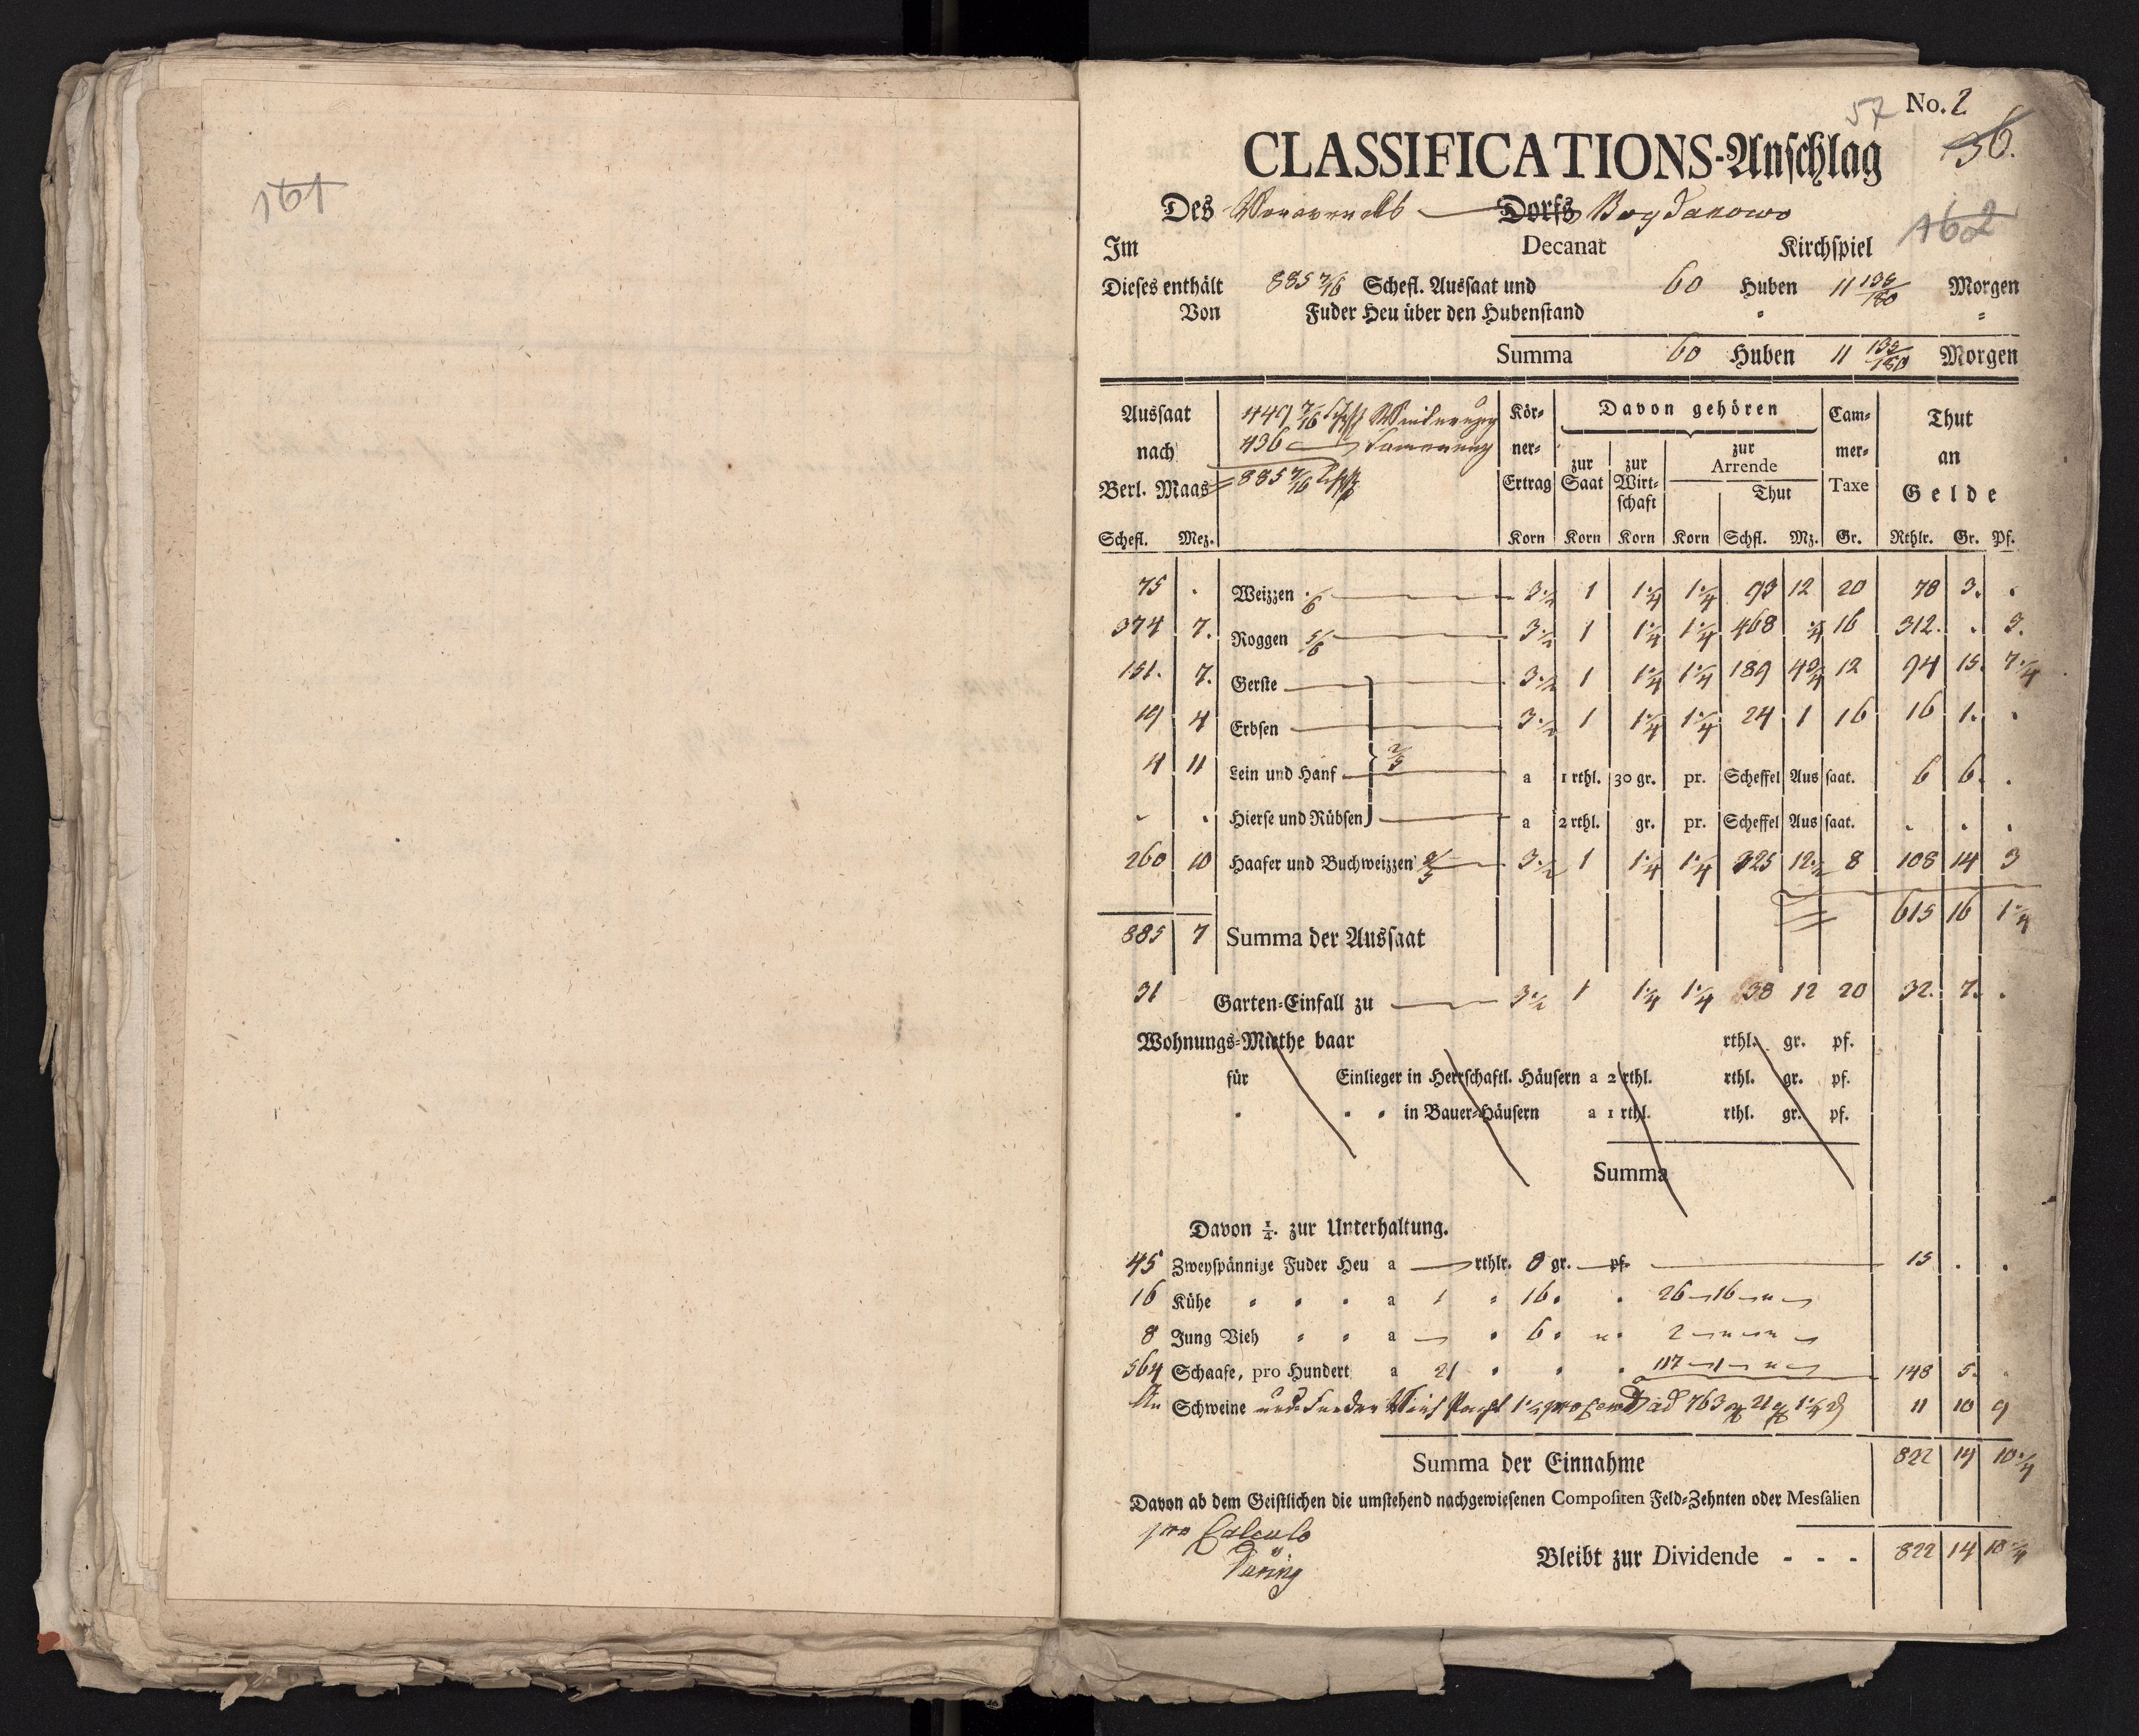 161
57 No. 2
CLASSIFICATIONS-Anschlag 36.
Des Vorwercks Dorfs Bogdanowo
162
Im Decanat Kirchspiel
Dieses enthält 885 7/16 Schefl. Aussaat und 60 Huben 11 138/180 Morgen
Von Fuder Heu über den Hubenstand
Summa 60 Huben 11 138/180 Morgen
Aussaat nach Berl. Maas
449 7/16 Schfl Winterung
436 Sommerung
885 7/16 Schfl
Körner-Ertrag Davon gehören Cammer-Taxe Thut an Gelde
zur Saat zur Wirtschaft zur Arrende Thut
Schefl. Mez. Korn Korn Korn Korn Schfl. Mz. Gr. Rthlr. Gr. Pf.
75 . Weizzen 1/6 3 1/2 1 1 1/4 1 1/4 93 12 20 78 3. .
374 7. Roggen 5/6 3 1/2 1 1 1/4 1 1/4 468 3/4 16 312. . 3.
151. 7. Gerste 3 1/2 1 1 1/4 1 1/4 189 4 3/4 12 94 15. 7 1/4
19 4 Erbsen 3 1/2 1 1 1/4 1 1/4 24 1 16 16 1. .
4 11 Lein und Hanf 2/5 a 1 rthl. 30 gr. pr. Scheffel Aussaat. 6 6. .
. . Hierse und Rübsen a 2 rthl. gr. pr. Scheffel Aussaat. . . .
260 10 Haafer und Buchweizzen 3/5 3 1/2 1 1 1/4 1 1/4 325 12 1/2 8 108 14 3
615 16 1 1/4
885 7 Summa der Aussaat
31 Garten-Einfall zu 3 1/2 1 1 1/4 1 1/4 38 12 20 32. 7. .
Wohnungs-Miethe baar rthl. gr. pf.
für Einlieger in Herrschaftl. Häusern a 2 rthl. rthl. gr. pf.
in Bauer-Häusern a 1 rthl. rthl. gr. pf.
Summa
Davon 1/4. zur Unterhaltung.
45 Zweyspännige Fuder Heu a — rthlr. 8 gr. — pf. 15 . .
16 Kühe a 1 16 26 — 16 — " —
8 Jung Vieh a — 6 2 — " — " —
564 Schaafe, pro Hundert a 21 117 — 1 — " — 148 5. .
An Schweine und Feder Vieh Pacht 1 1/2 pro Cent ad 763 21 1 1/4 11 10 9
Summa der Einnahme 822 14 10 1/4
Davon ab dem Geistlichen die umstehend nachgewiesenen Compositen Feld-Zehnten oder Messalien
pro Calculo
Bleibt zur Dividende - - - 822 14 10 1/4